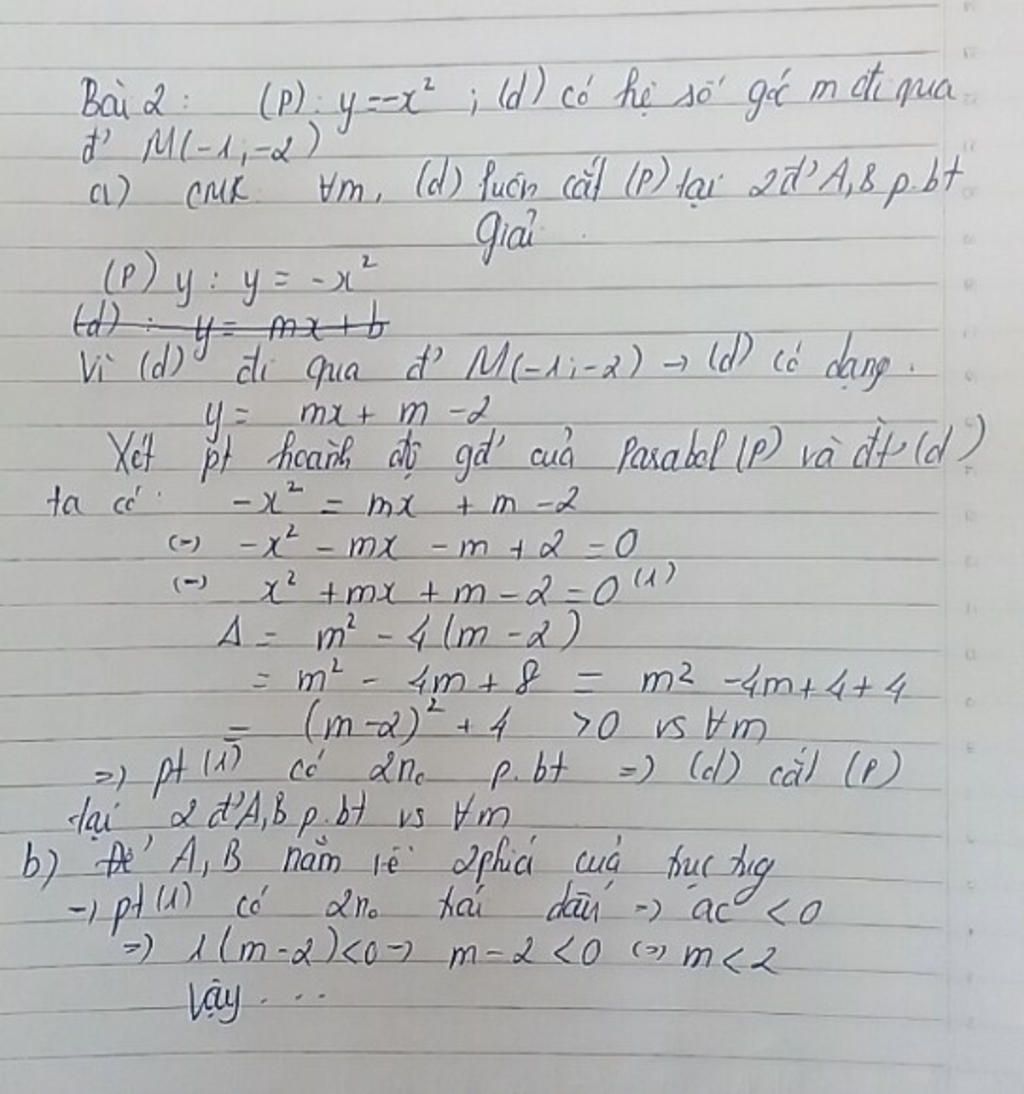 Bài 2: (P): y=-x² ; (d) có hệ số góc m đi qua
đ' M(-1;-2)
a) CMR ∀m, (d) luôn cắt (P) tại 2đ' A,B p.bt
Giải
(P) y: y = -x²
(d): y = mx + b
Vì (d) đi qua đ' M(-1;-2) → (d) có dạng.
y = mx + m - 2
Xét pt hoành độ gđ' của Parabol (P) và đt (d)
ta có: -x² = mx + m - 2
(=) -x² - mx - m + 2 = 0
(=) x² + mx + m - 2 = 0 (1)
Δ = m² - 4(m - 2)
= m² - 4m + 8 = m² - 4m + 4 + 4
= (m-2)² + 4 >0 vs ∀m
=) pt (1) có 2no p.bt =) (d) cắt (P)
tại 2 đ' A,B p.bt vs ∀m
b) Để A, B nằm về 2phía của trục tug
→ pt (1) có 2no trái dấu → ac <0
=) 1(m-2)<0 → m - 2 <0 (=) m < 2
Vậy ...